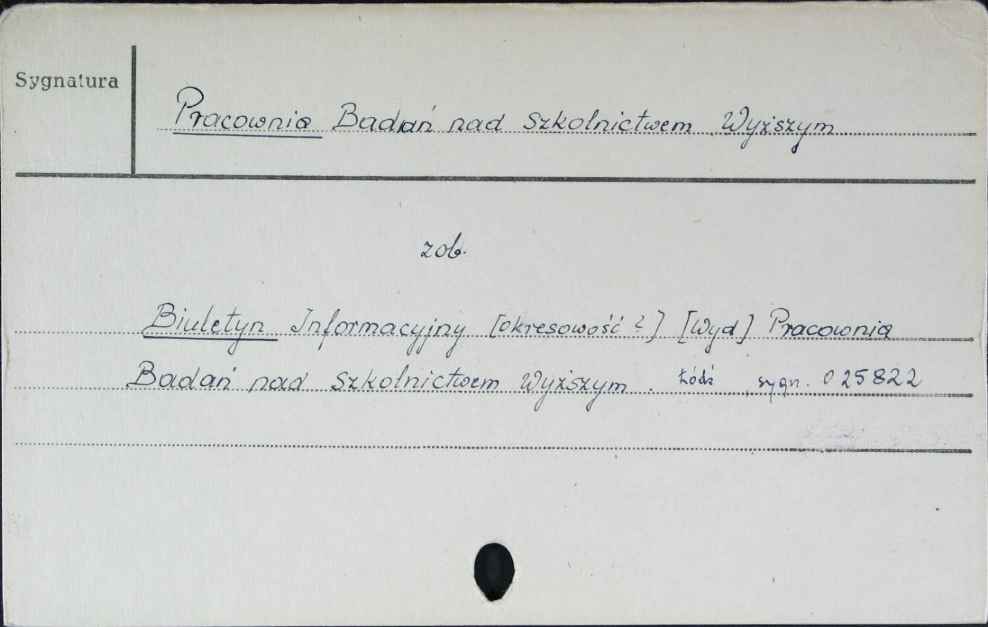 Sygnatura
Pracownia Badań nad Szkolnictwem Wyższym
zob.
Biuletyn Informacyjny [okresowość ?] [Wyd] Pracownia
Badań nad Szkolnictwem Wyższym. Łódź sygn. 025822